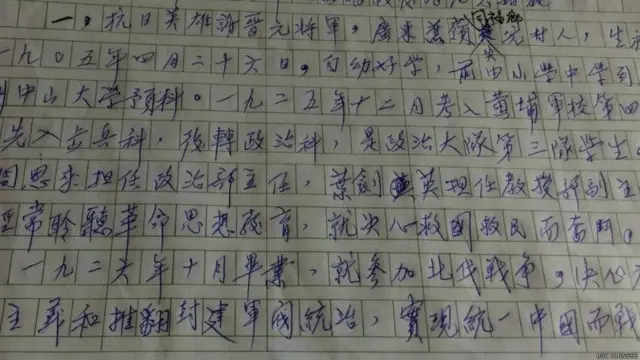 一,抗日英雄謝晋元將軍,廣東蕉嶺 同福鄉 尖坑村人,生
一九〇五年四月二十六日,自幼好学,由小学中学到
中山大学預科。一九二五年十二月考入黃埔軍校第四
先入步兵科,後轉政治科,是政治大隊第三隊学生
周恩来担任政治部主任,葉劍英担任教授部副主
常聆聽革命思想教育,就决心救國救民而奮鬥。
一九二六年十月畢業,就參加北伐戰争,决心
主義和推翻封建軍閥統治,實現統一中國而戰